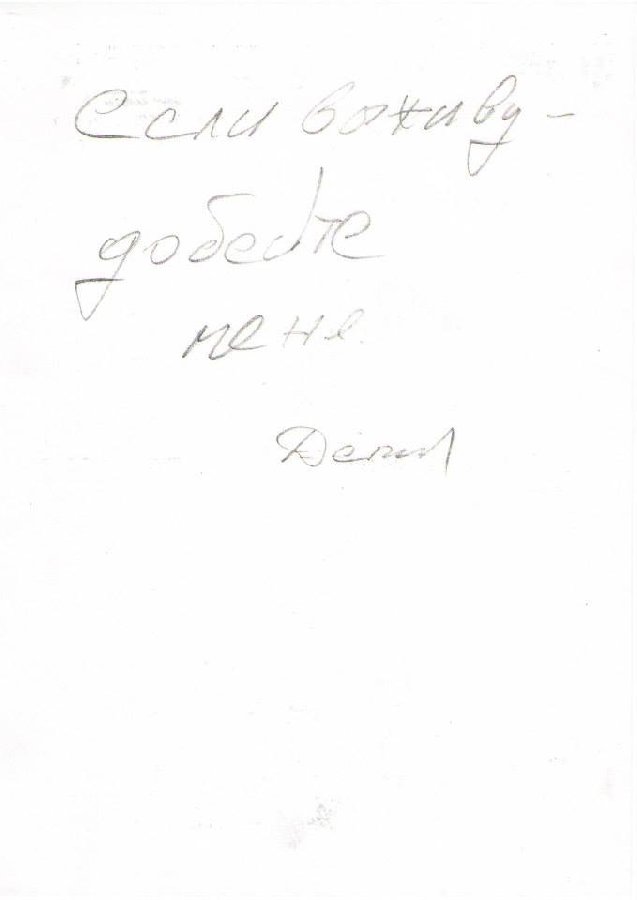 если воживу -
добейте
мене.